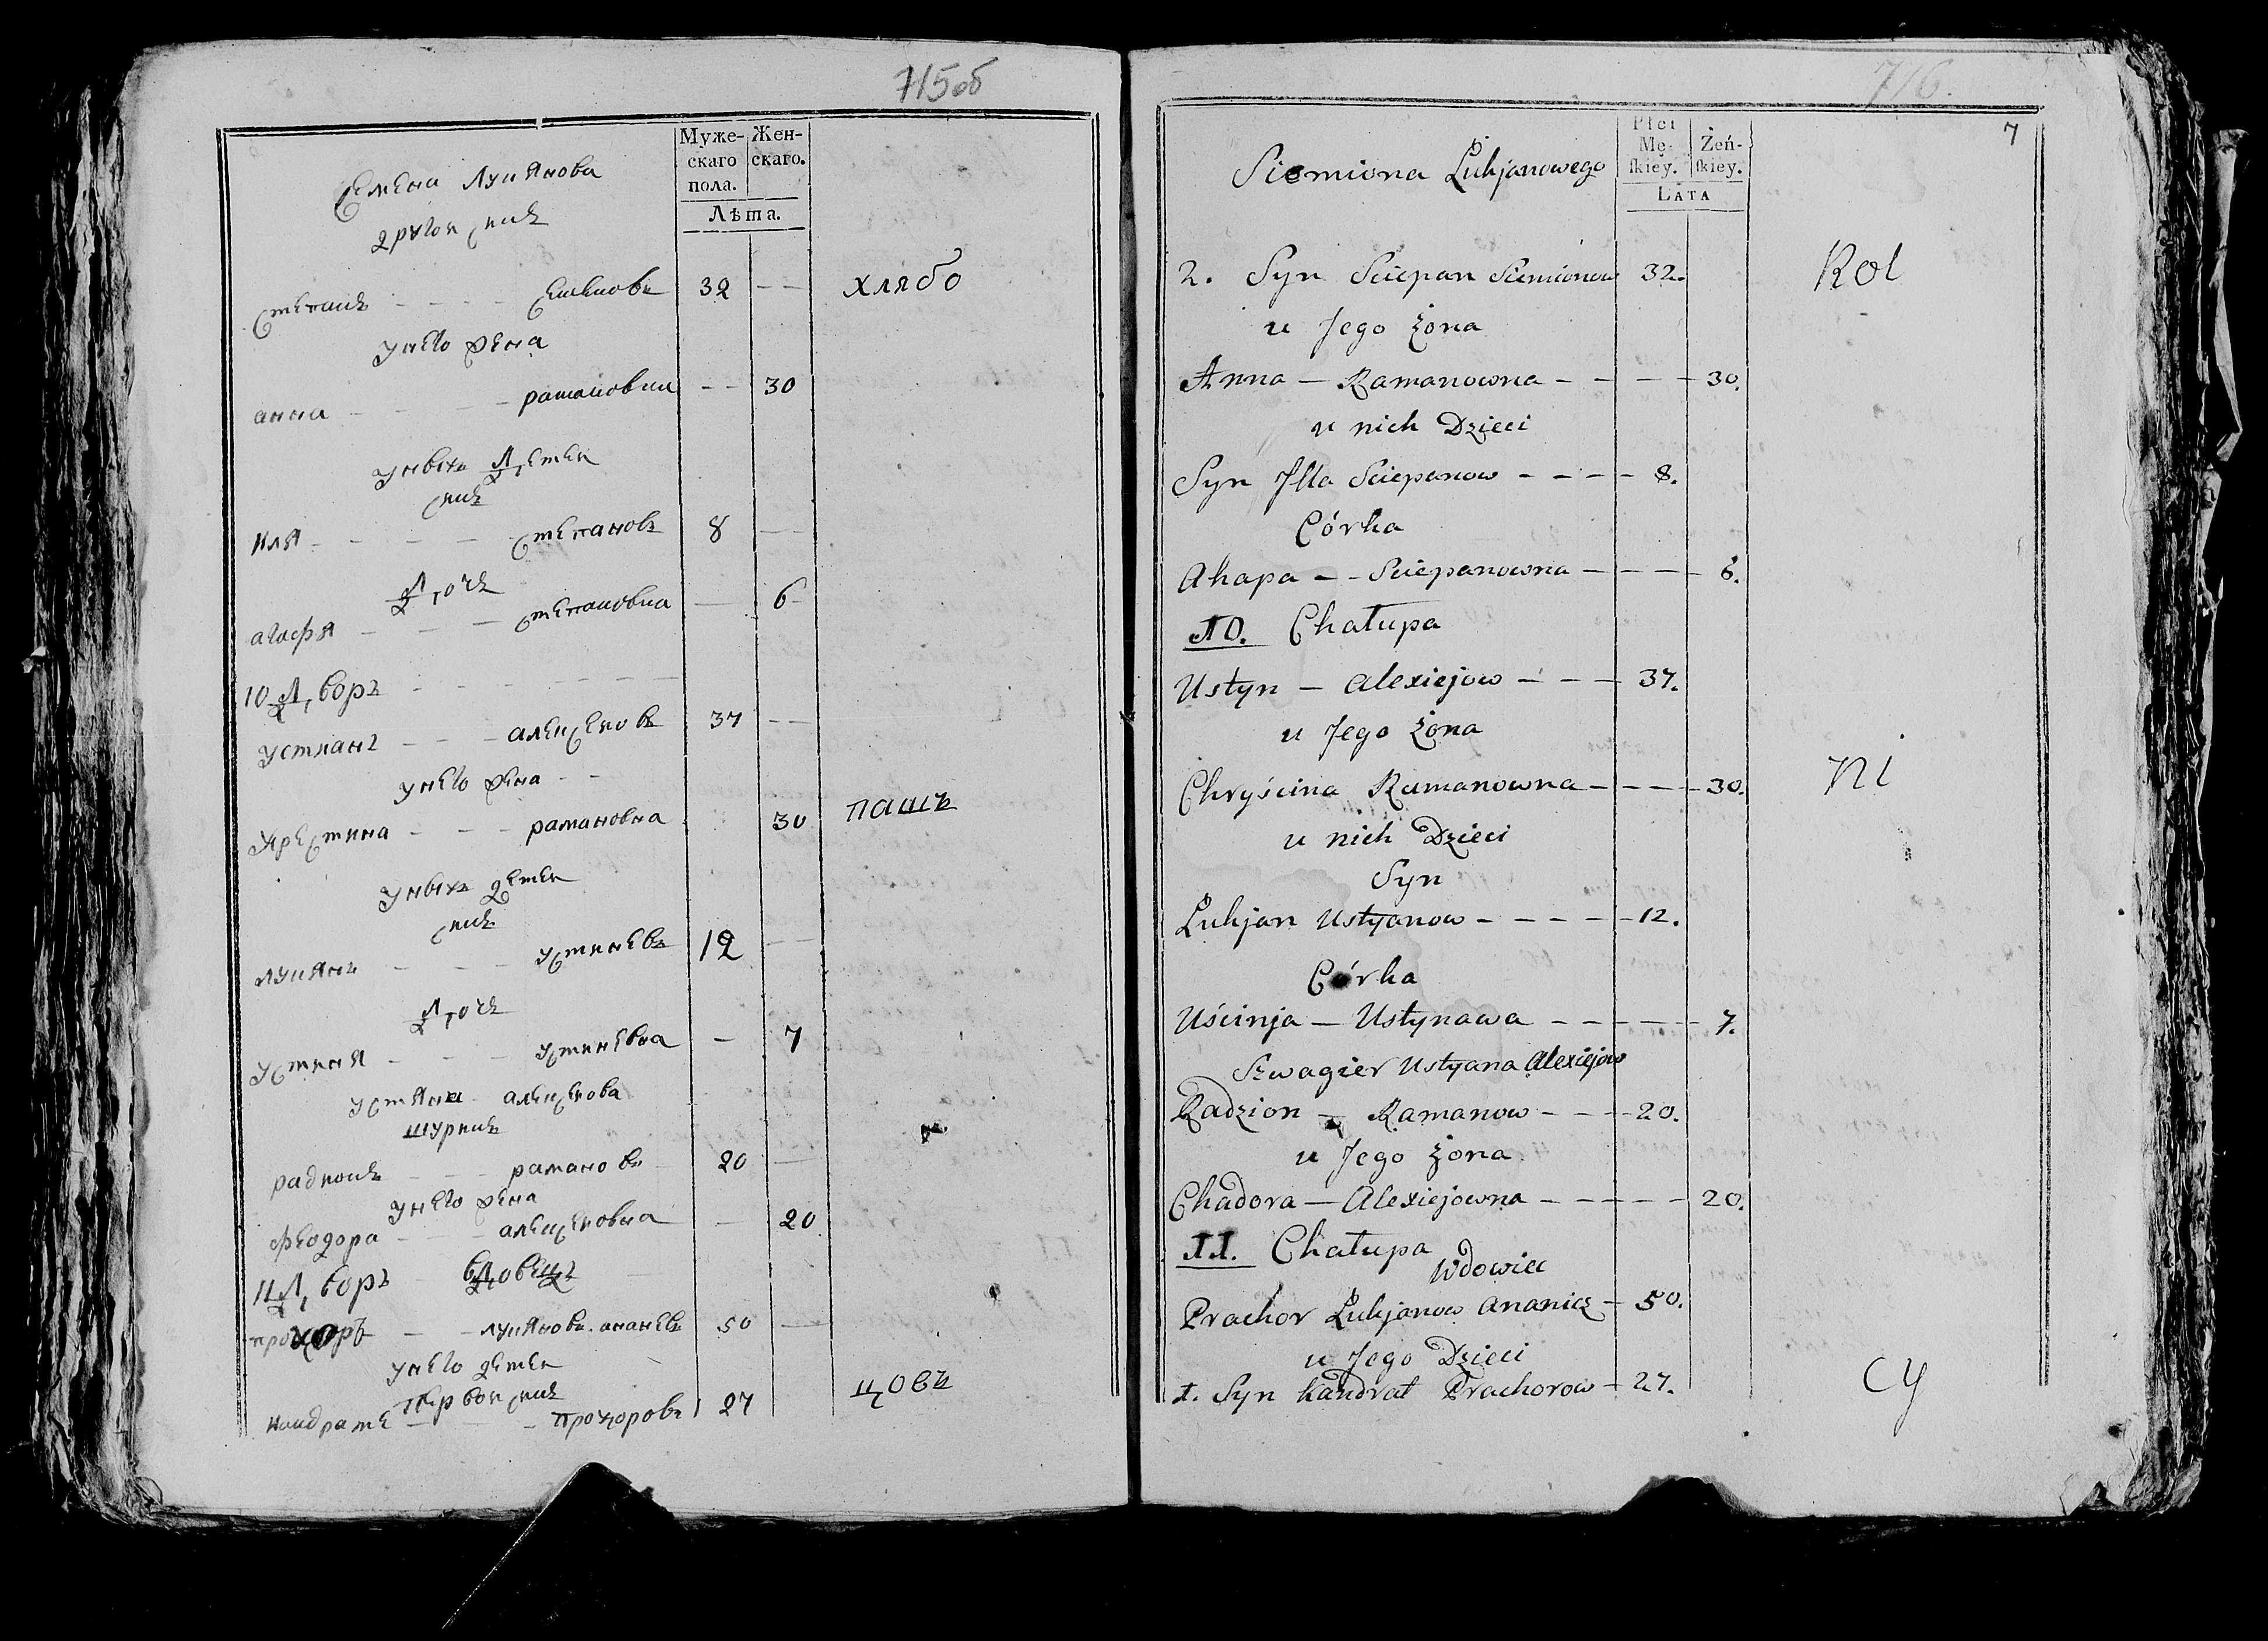 715об
Муже- Жен-
скаго скаго.
пола.
Лѣта.
Семена Лукянова
другой сынъ
степанъ - - - - Семеновъ 32 - - хлябо
унего жена
анна - - - - рамановна - - 30
уныхъ Детей
сынъ
иля - - - - Степановъ 8 - -
Дочъ
агафя - - - степановна - 6
10 Дворъ - - - - - -
устианъ - - - алексеевъ 37 - -
унего жена - -
хрестина - - - рамановна 30 пашъ
уныхъ детей
сынъ
лукянъ - - - устиневъ 12 - -
Дочъ
устиня - - - устиневна - 7
устяна алексеева
шуринъ
радионъ - - - рамановъ 20 -
унего жена
феодора - - - алексеевна - 20
11 Дворъ вдовецъ
прохоръ - - лукяновъ ананевъ 50 -
унего детей
первой сынъ
кондрате - - - прохоровъ 27 цовъ
716.
7
Płci
Mę- Żeń-
ſkiey. ſkiey.
LATA
Siemiona Łukjanowego
2. Syn Sciepan Siemionow 32. Rol
u Jego Żona
Anna — Ramanowna - - - - 30.
u nich Dzieci
Syn Jlla Sciepanow - - - - 8.
Córka
Ahapa - - Sciepanowna - - - - 6.
10. Chałupa
Ustyn — Alexiejow - - - 37.
u Jego Żona
Chryścina Ramanowna - - - - 30. ni
u nich Dzieci
Syn
Łukjan Ustyanow - - - - - 12.
Córka
Uścinja — Ustynawa - - - - - 7.
Szwagier Ustyana Alexiejow
Radzion — Ramanow - - - 20.
u Jego Żona
Chadora — Alexiejowna - - - - - 20.
11. Chałupa
Wdowiec
Prachor Łukjanow Ananicz - 50.
u Jego Dzieci
1. Syn Kandrat Prachorow - 27. cy